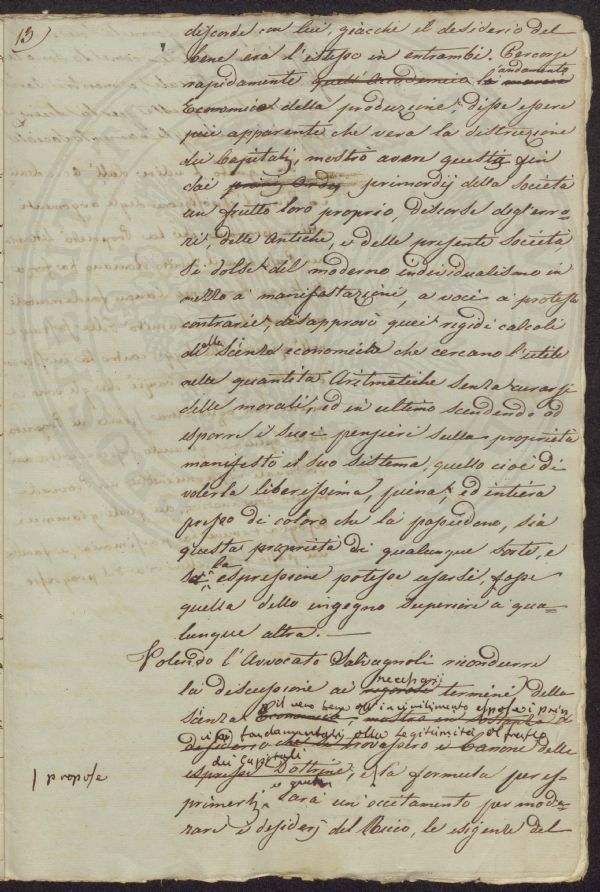 13)
discorde con lui, giacchè il desiderio del
bene era l'istesso in entrambi. Percorse
rapidamente quell' Accademico la andamento
Economico della produzione; disse essere
più apparente che vera la distruzione
dei Capitali, mostrò avere questi fin
dai primordj della Società
un frutto loro proprio, discorse degl'erro=
ri, delle Antiche, e delle presente Società,
Si dolse del moderno individualismo in
mezzo a manifestazioni, a voci a proteste
contrarie, disapprovò quei rigidi calcoli
della Scienza economiche che cercano l'utile
nelle quantità Aritmetiche senza curarsi
delle morali, ed in ultimo scendendo ad
esporre i Suoi pensieri Sulla proprietà
manifestò il Suo Sistema, quello cioè di
volerla liberissima, piena, ed intiera
presso di coloro che la possiedono, sia
questa proprietà di qualunque Sorte, e
Se la espressione potesse usarsi, fosse
quella dello ingegno Superiore a qua=
lunque altra. —
Volendo l'Avvocato Salvagnoli ricondurre
necessarj
la discussione ai rigorosi termini della
il vero bene all' incivilimento espose i prin
Scienza Economica, mostrò in Sostanza il
cipj fondamentali alla Legittimità del frutto
desiderio che si trovassero il Canone delle
dei Capitali
espresse Dottrine; e la formula per es=
| propose
e questa
primerli Sarà un'eccitamento per mode=
rare i desiderj del Ricco, le esigenze del